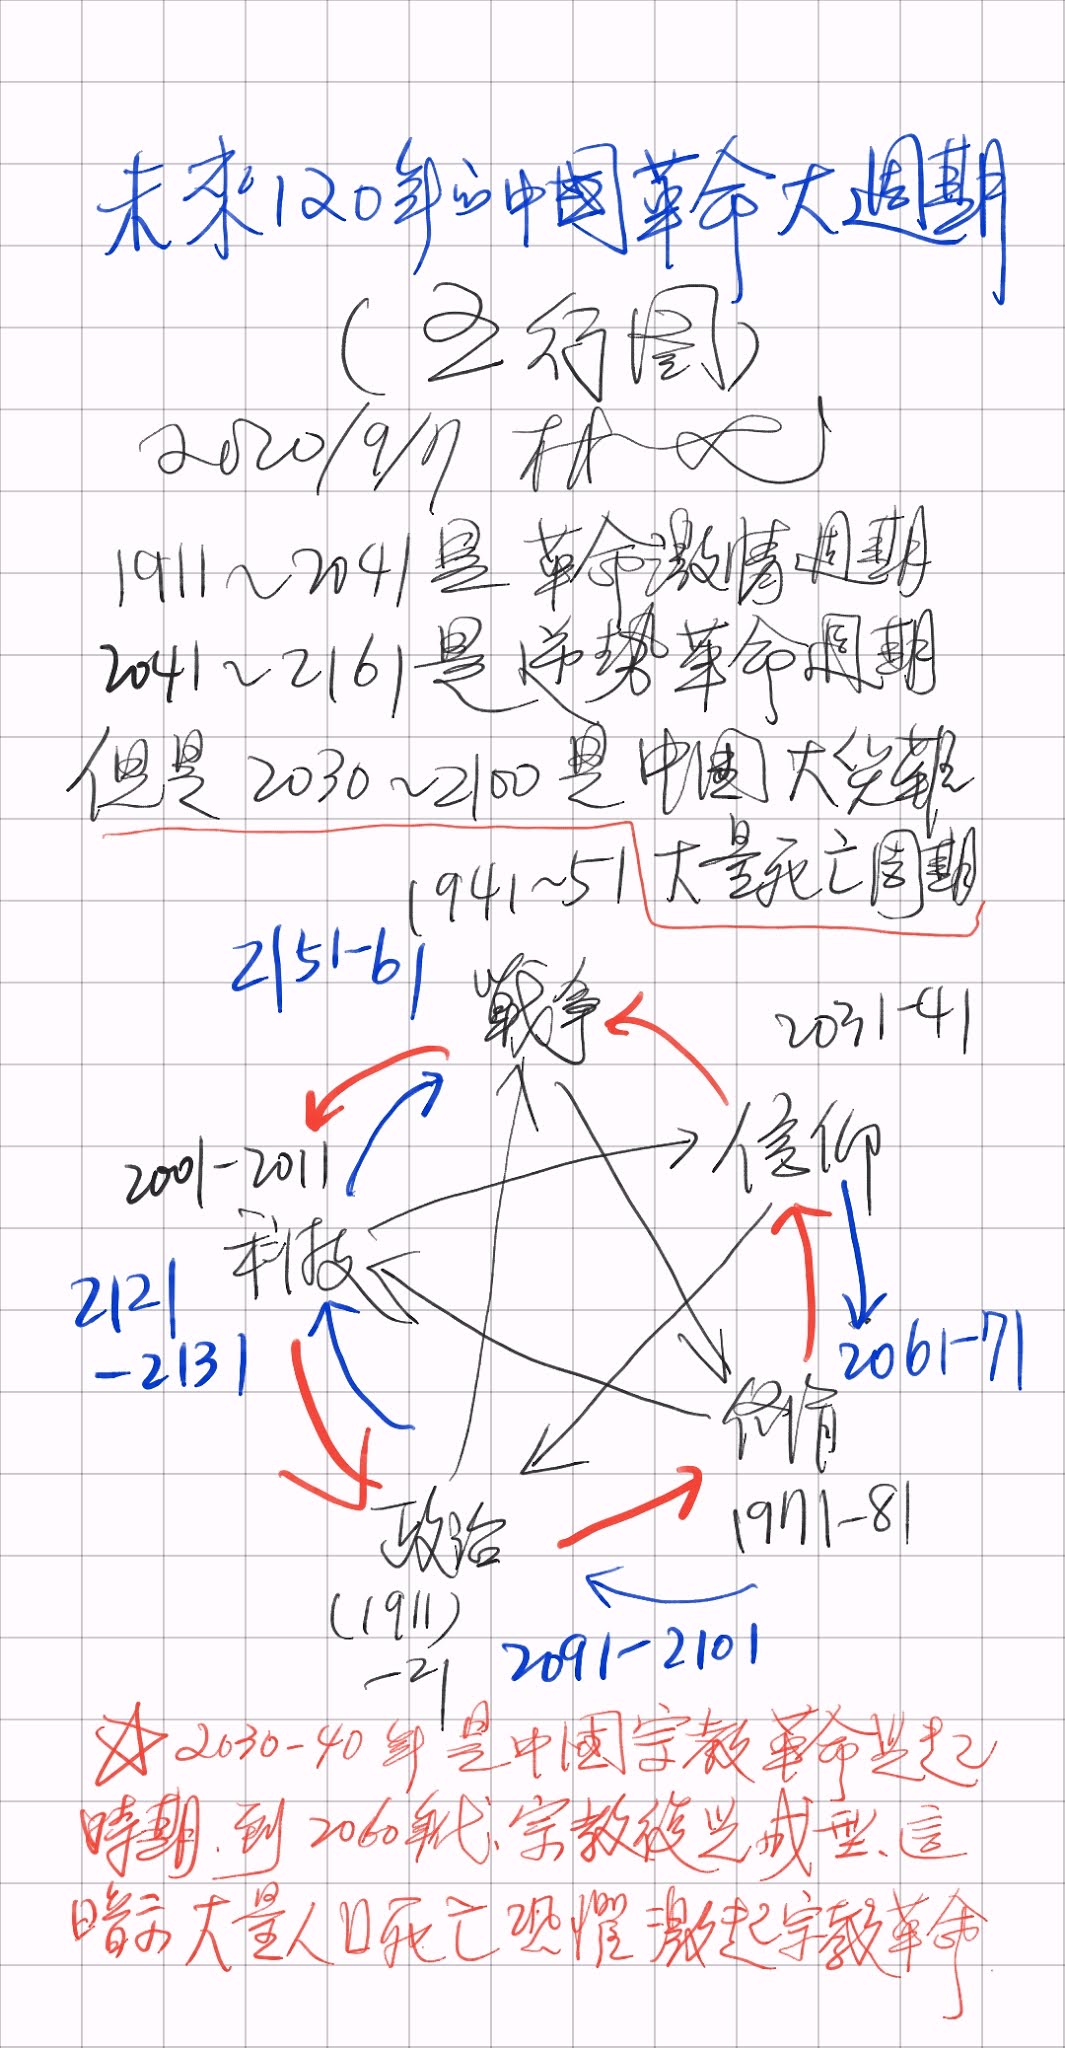 未來120年的中國革命大週期
(五行图)
2020/9/17 林
1911～2041是革命激情週期
2041～2161是逆勢革命週期
但是2030～2100是中國大災難
大量死亡周期
1941～51
2151-61
戰爭
2031-41
信仰
2001-2011
科技
2121
-2131
2061-71
終肓
1971-81
政治
(1911)
-21
2091-2101
☆2030-40年是中國宗教革命興起
時期.到2060年代、宗教復興成型、這
暗示大量人口死亡恐懼激起宗教革命